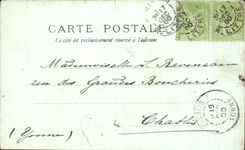 CARTE POSTALE
Ce côté est exclusivement réservé à l'adresse
Mademoiselle L. Revereau
rue des Grandes Boucheries
Chablis
(Yonne)